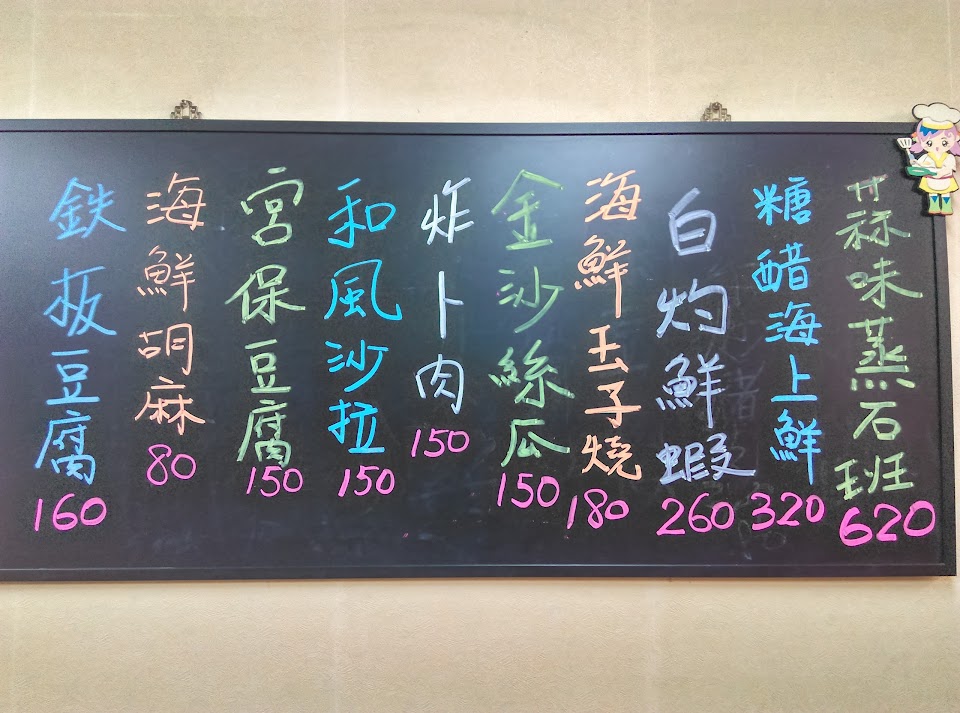 蒜味蒸石班
620
糖醋海上鮮
320
白灼鮮蝦
260
海鮮玉子燒
180
金沙絲瓜
150
炸卜肉
150
和風沙拉
150
宮保豆腐
150
海鮮胡麻
80
鉄板豆腐
160